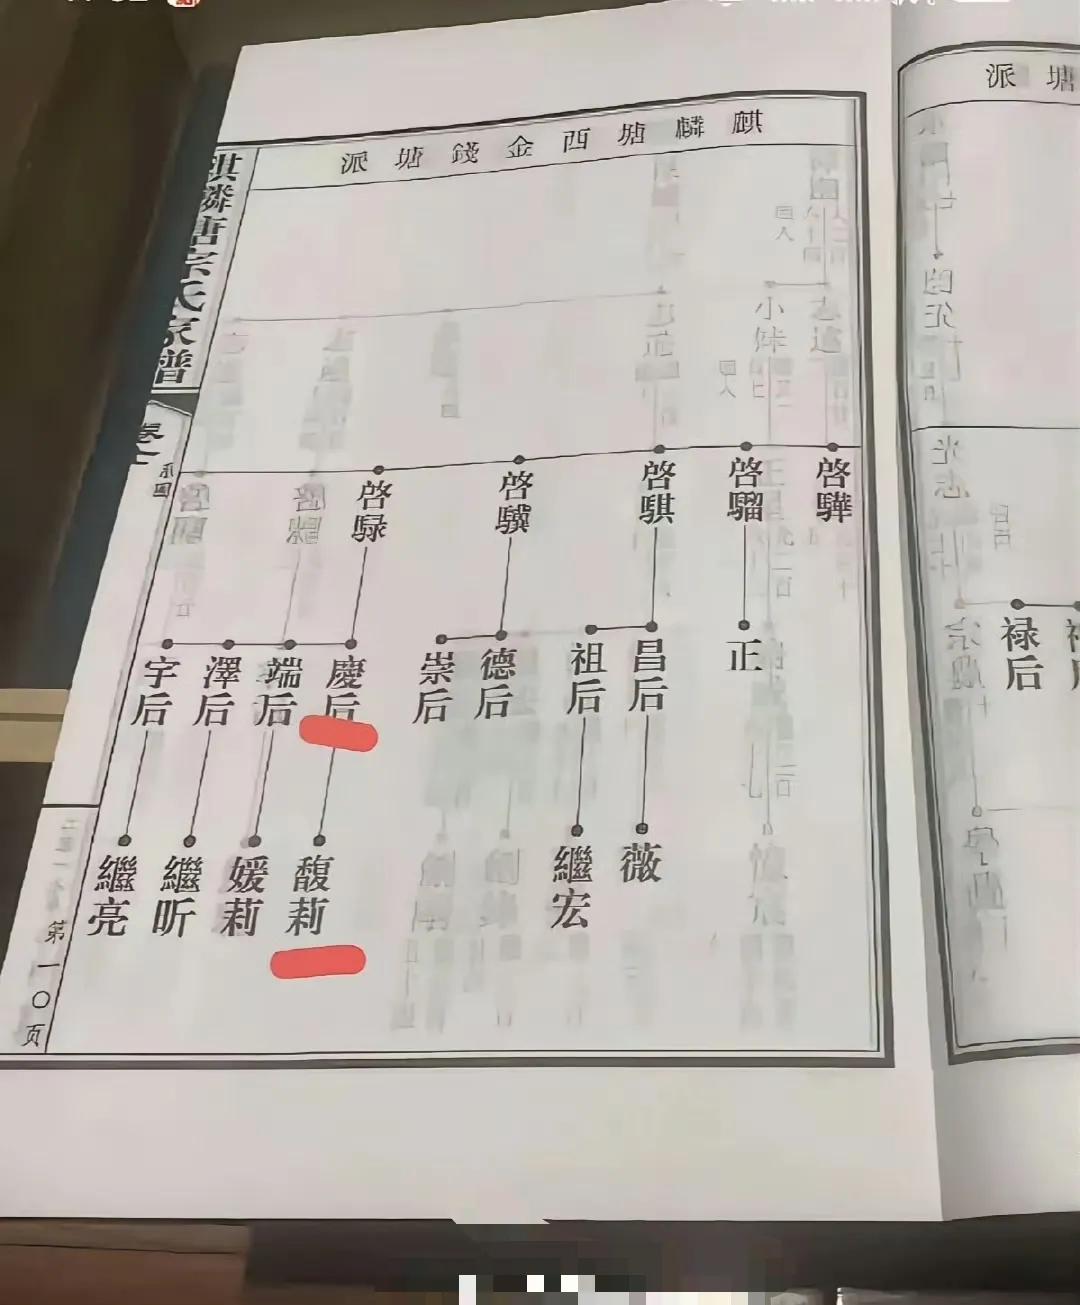 麒麟塘西金錢塘派
麒麟塘宗氏家譜
系圖
啓驊
啓騮
啓騏
啓驥
啓騄
正
昌后
祖后
德后
崇后
慶后
端后
澤后
宇后
薇
繼宏
馥莉
媛莉
繼昕
繼亮
第一〇页
塘派
禄后